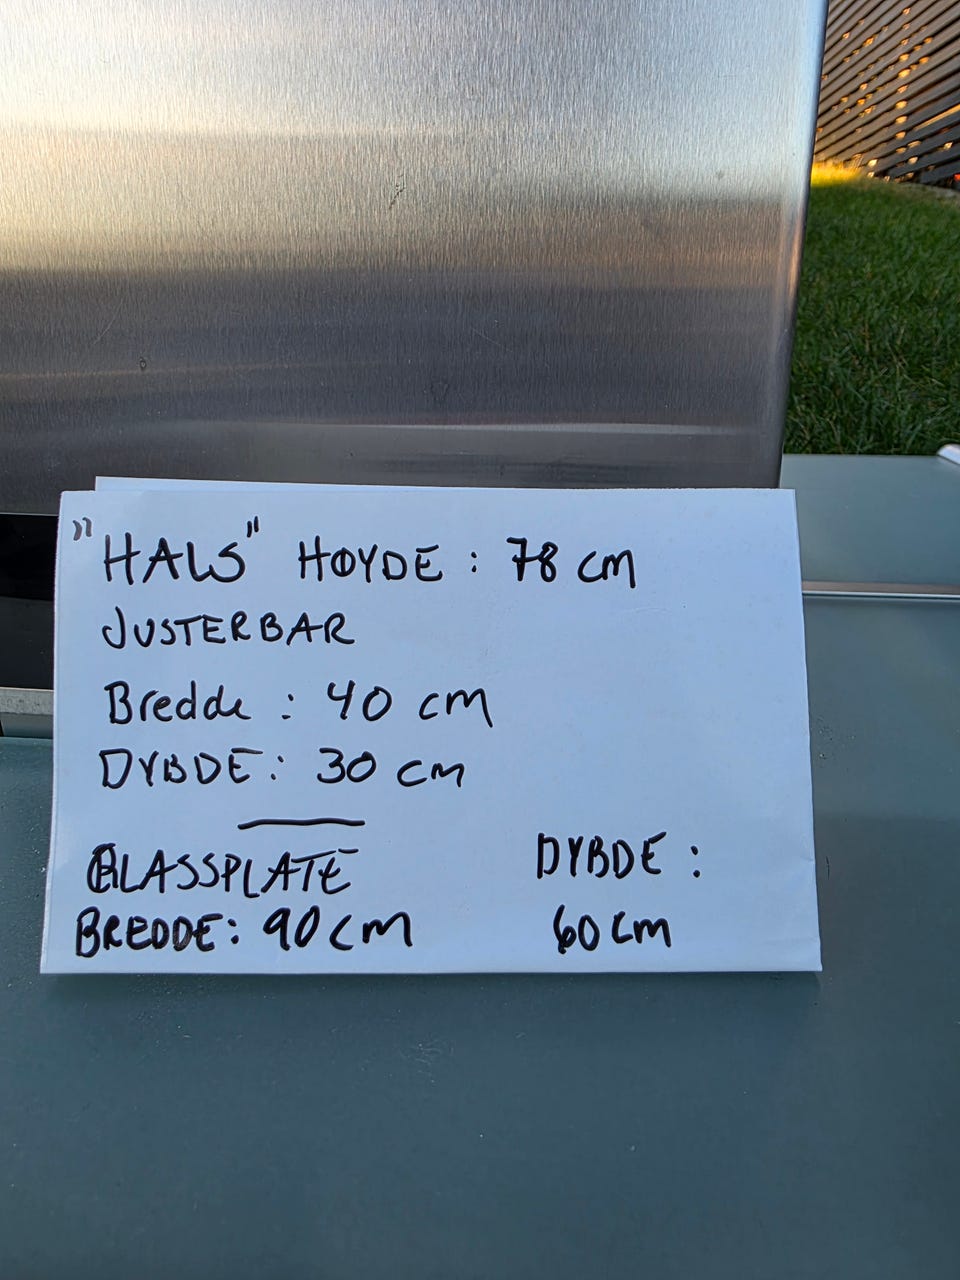 "HALS" HØYDE : 78 cm
JUSTERBAR
Bredde : 40 cm
DYBDE : 30 cm
GLASSPLATE
BREDDE : 90 cm
DYBDE :
60 cm